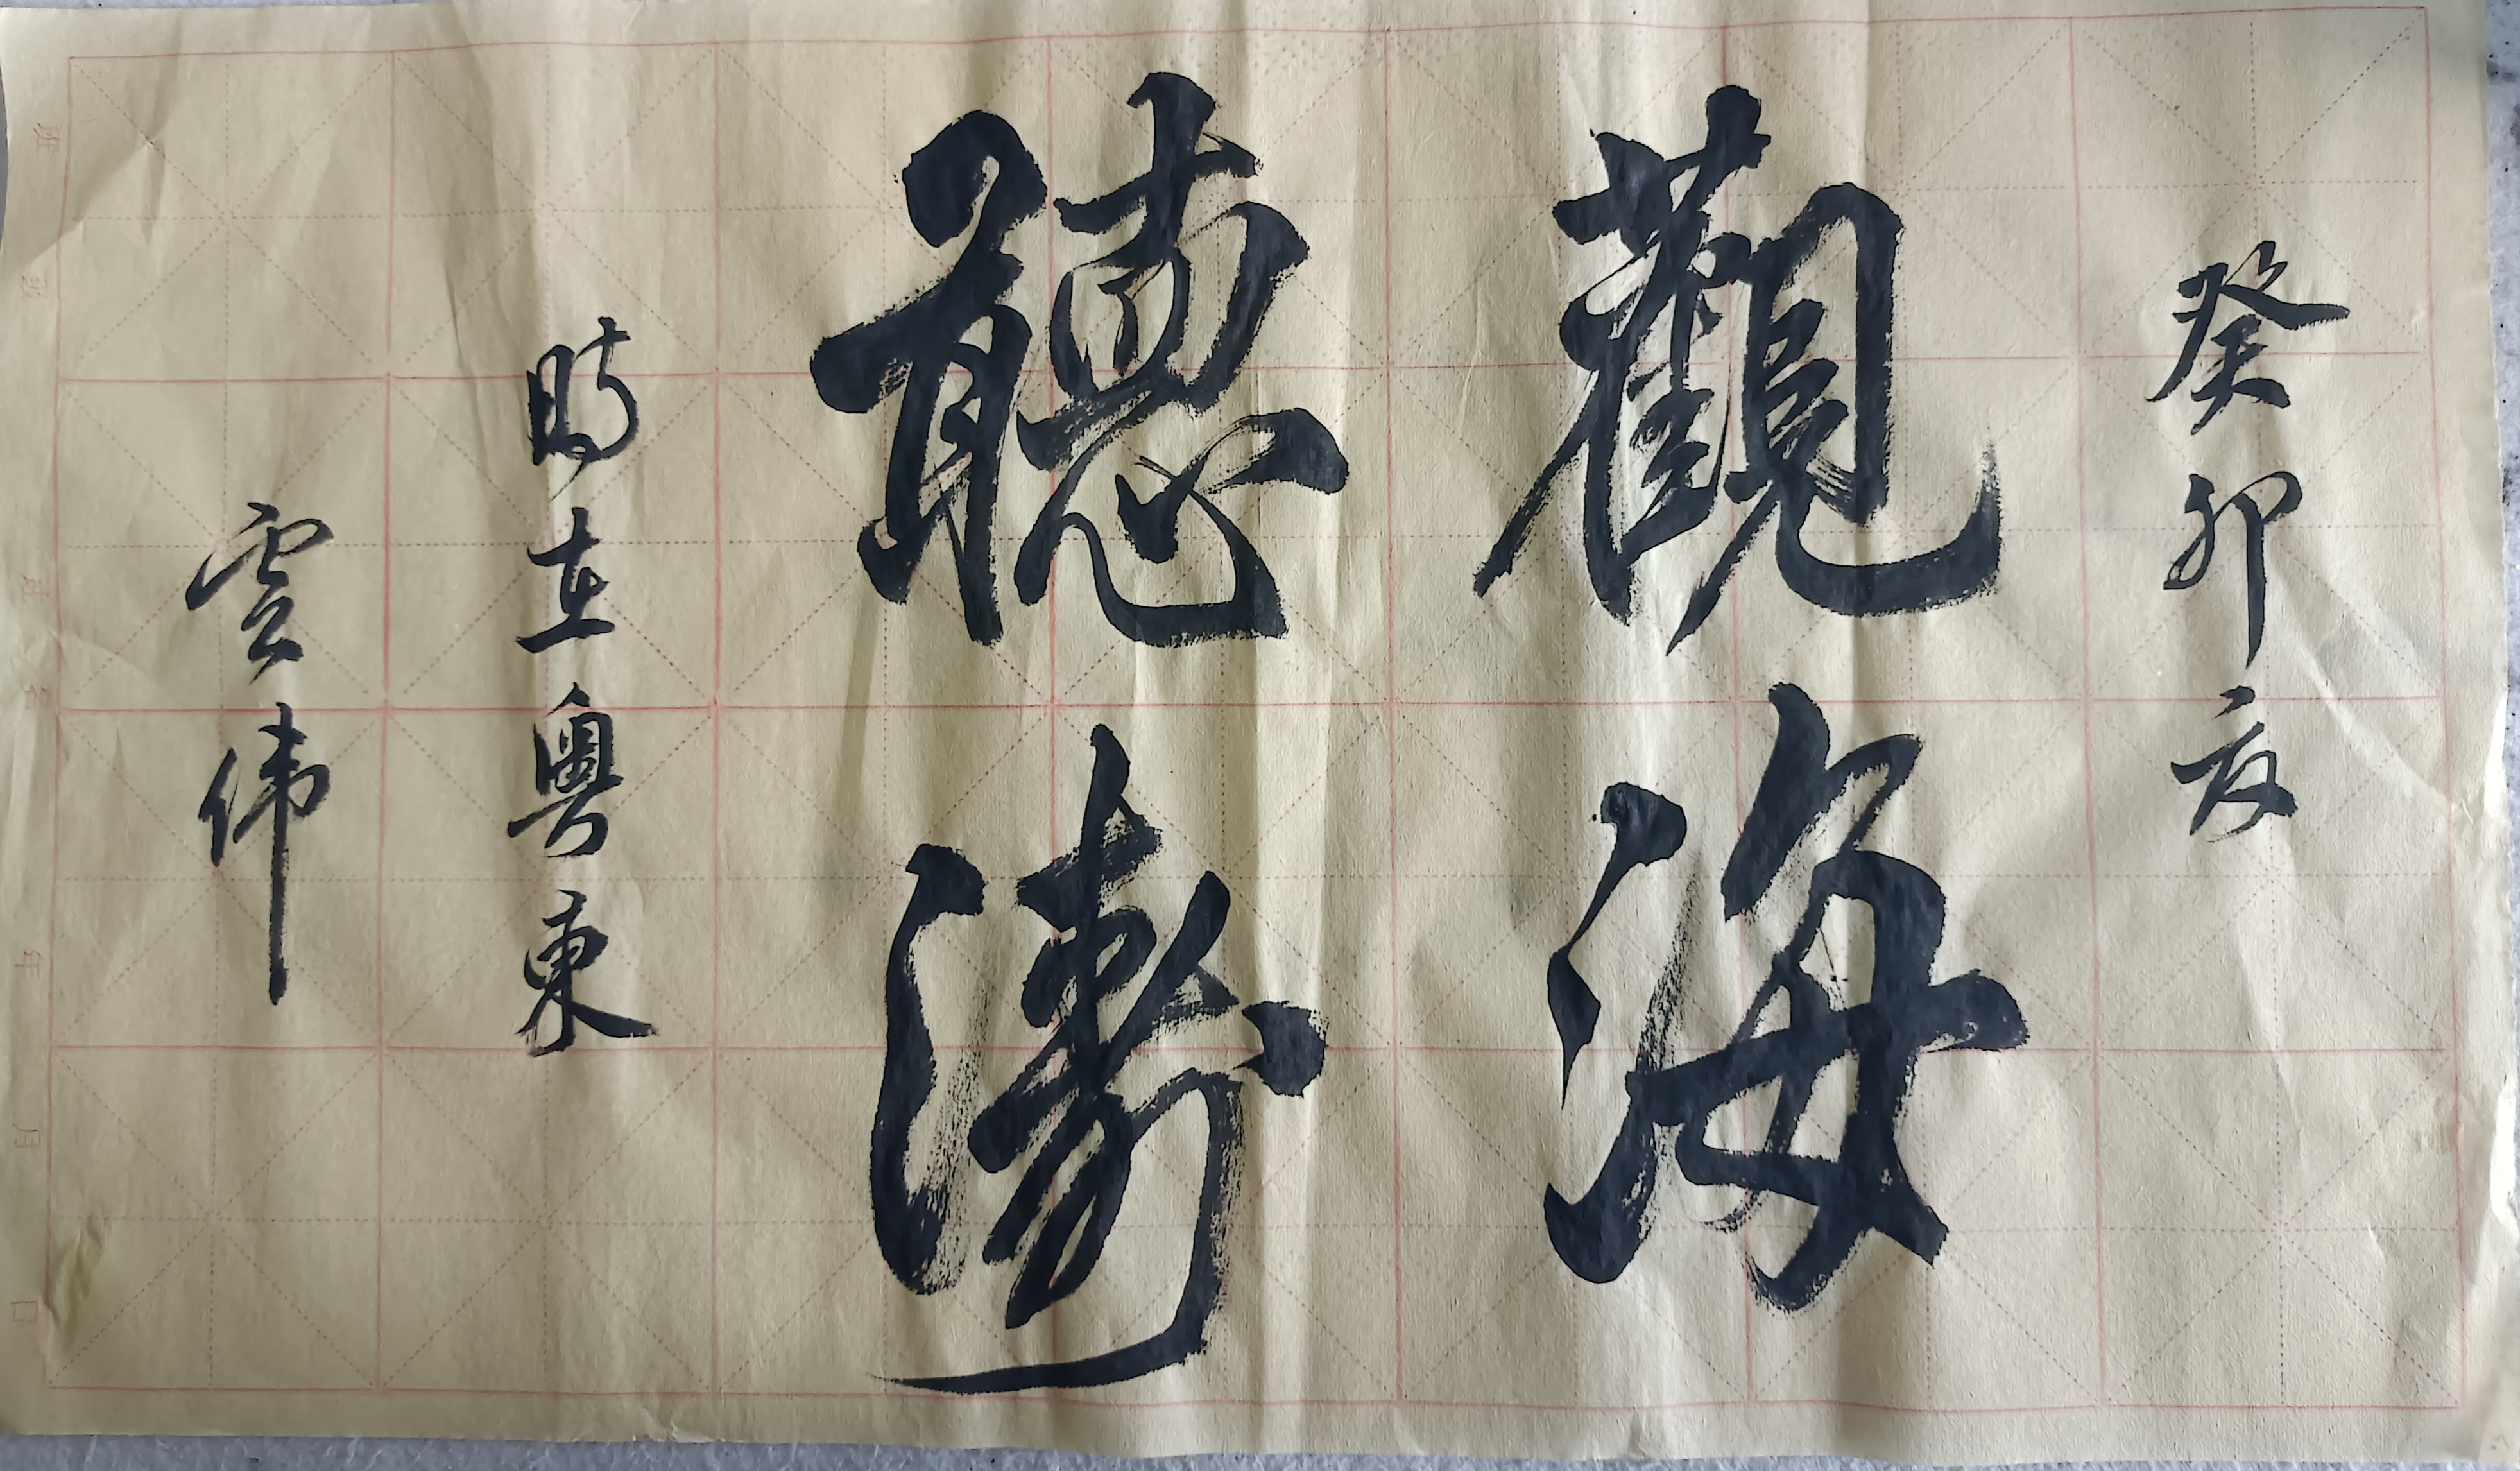 癸卯夏
觀海
聽濤
時在粤東
雲偉